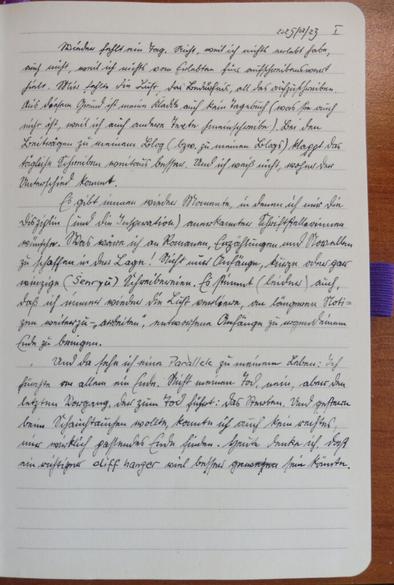 Wieder fehlt ein Tag. Nicht, weil ich nichts erlebt habe,
auch nicht, weil ich nichts vom Erlebten fürs aufschreibenswert
hielt. Mir fehlte die Lust, das Bedürfnis, all das aufzuschreiben.
Aus diesem Grund ist meine Kladde auch kein Tagebuch (was sie auch
nicht ist, weil ich auch andere Texte hineinschreibe). Bei den
Beiträgen zu meinem Blog (bzw. zu meinen Blogs) klappt das
tägliche Schreiben weitaus besser. Und ich weiß nicht, woher der
Unterschied kommt.
Es gibt immer wieder Momente, in denen ich mir die
Disziplin (und die Inspiration) anerkannter Schriftstellerinnen
wünsche. Was wäre ich an Romanen, Erzählungen und Novellen
zu schaffen in der Lage! Nicht nur Anfänge, kurze oder gar
winzige (Senryū) Schreibereien. Es stimmt (leider) auch,
daß ich immer wieder die Lust verliere, an längeren Noti-
zen weiterzu-„arbeiten", entworfene Anfänge zu irgendeinem
Ende zu bringen.
Und da sehe ich eine Parallele zu meinem Leben: Ich
fürchte vor allem ein Ende. Nicht meinen Tod, nein, aber den
letzten Vorgang, der zum Tod führt: das Sterben. Und gestern
beim wollte, konnte ich auch kein rechtes,
mir wirklich passendes Ende finden. Heute denke ich, daß
ein richtiger cliff hanger viel besser gewesen sein könnte.